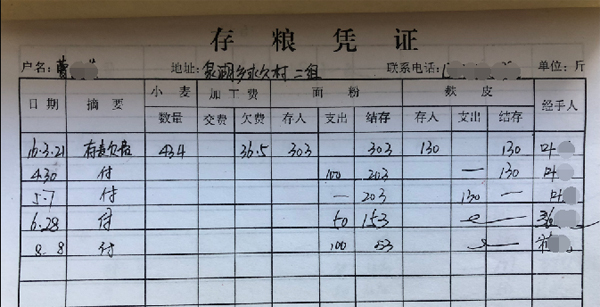 存粮凭证
户名: 曹 地址: 泉湖乡永久村二组 联系电话: 单位: 斤
日期 摘要 小麦 加工费 面粉 麸皮 经手人
数量 交费 欠费 存入 支出 结存 存入 支出 结存
16.3.21 存麦欠费 434 36.5 303 303 130 130 叶
4.30 付 100 203 — 130 叶
5.7 付 — 203 130 — 叶
6.28 付 50 153
8.8 付 100 53